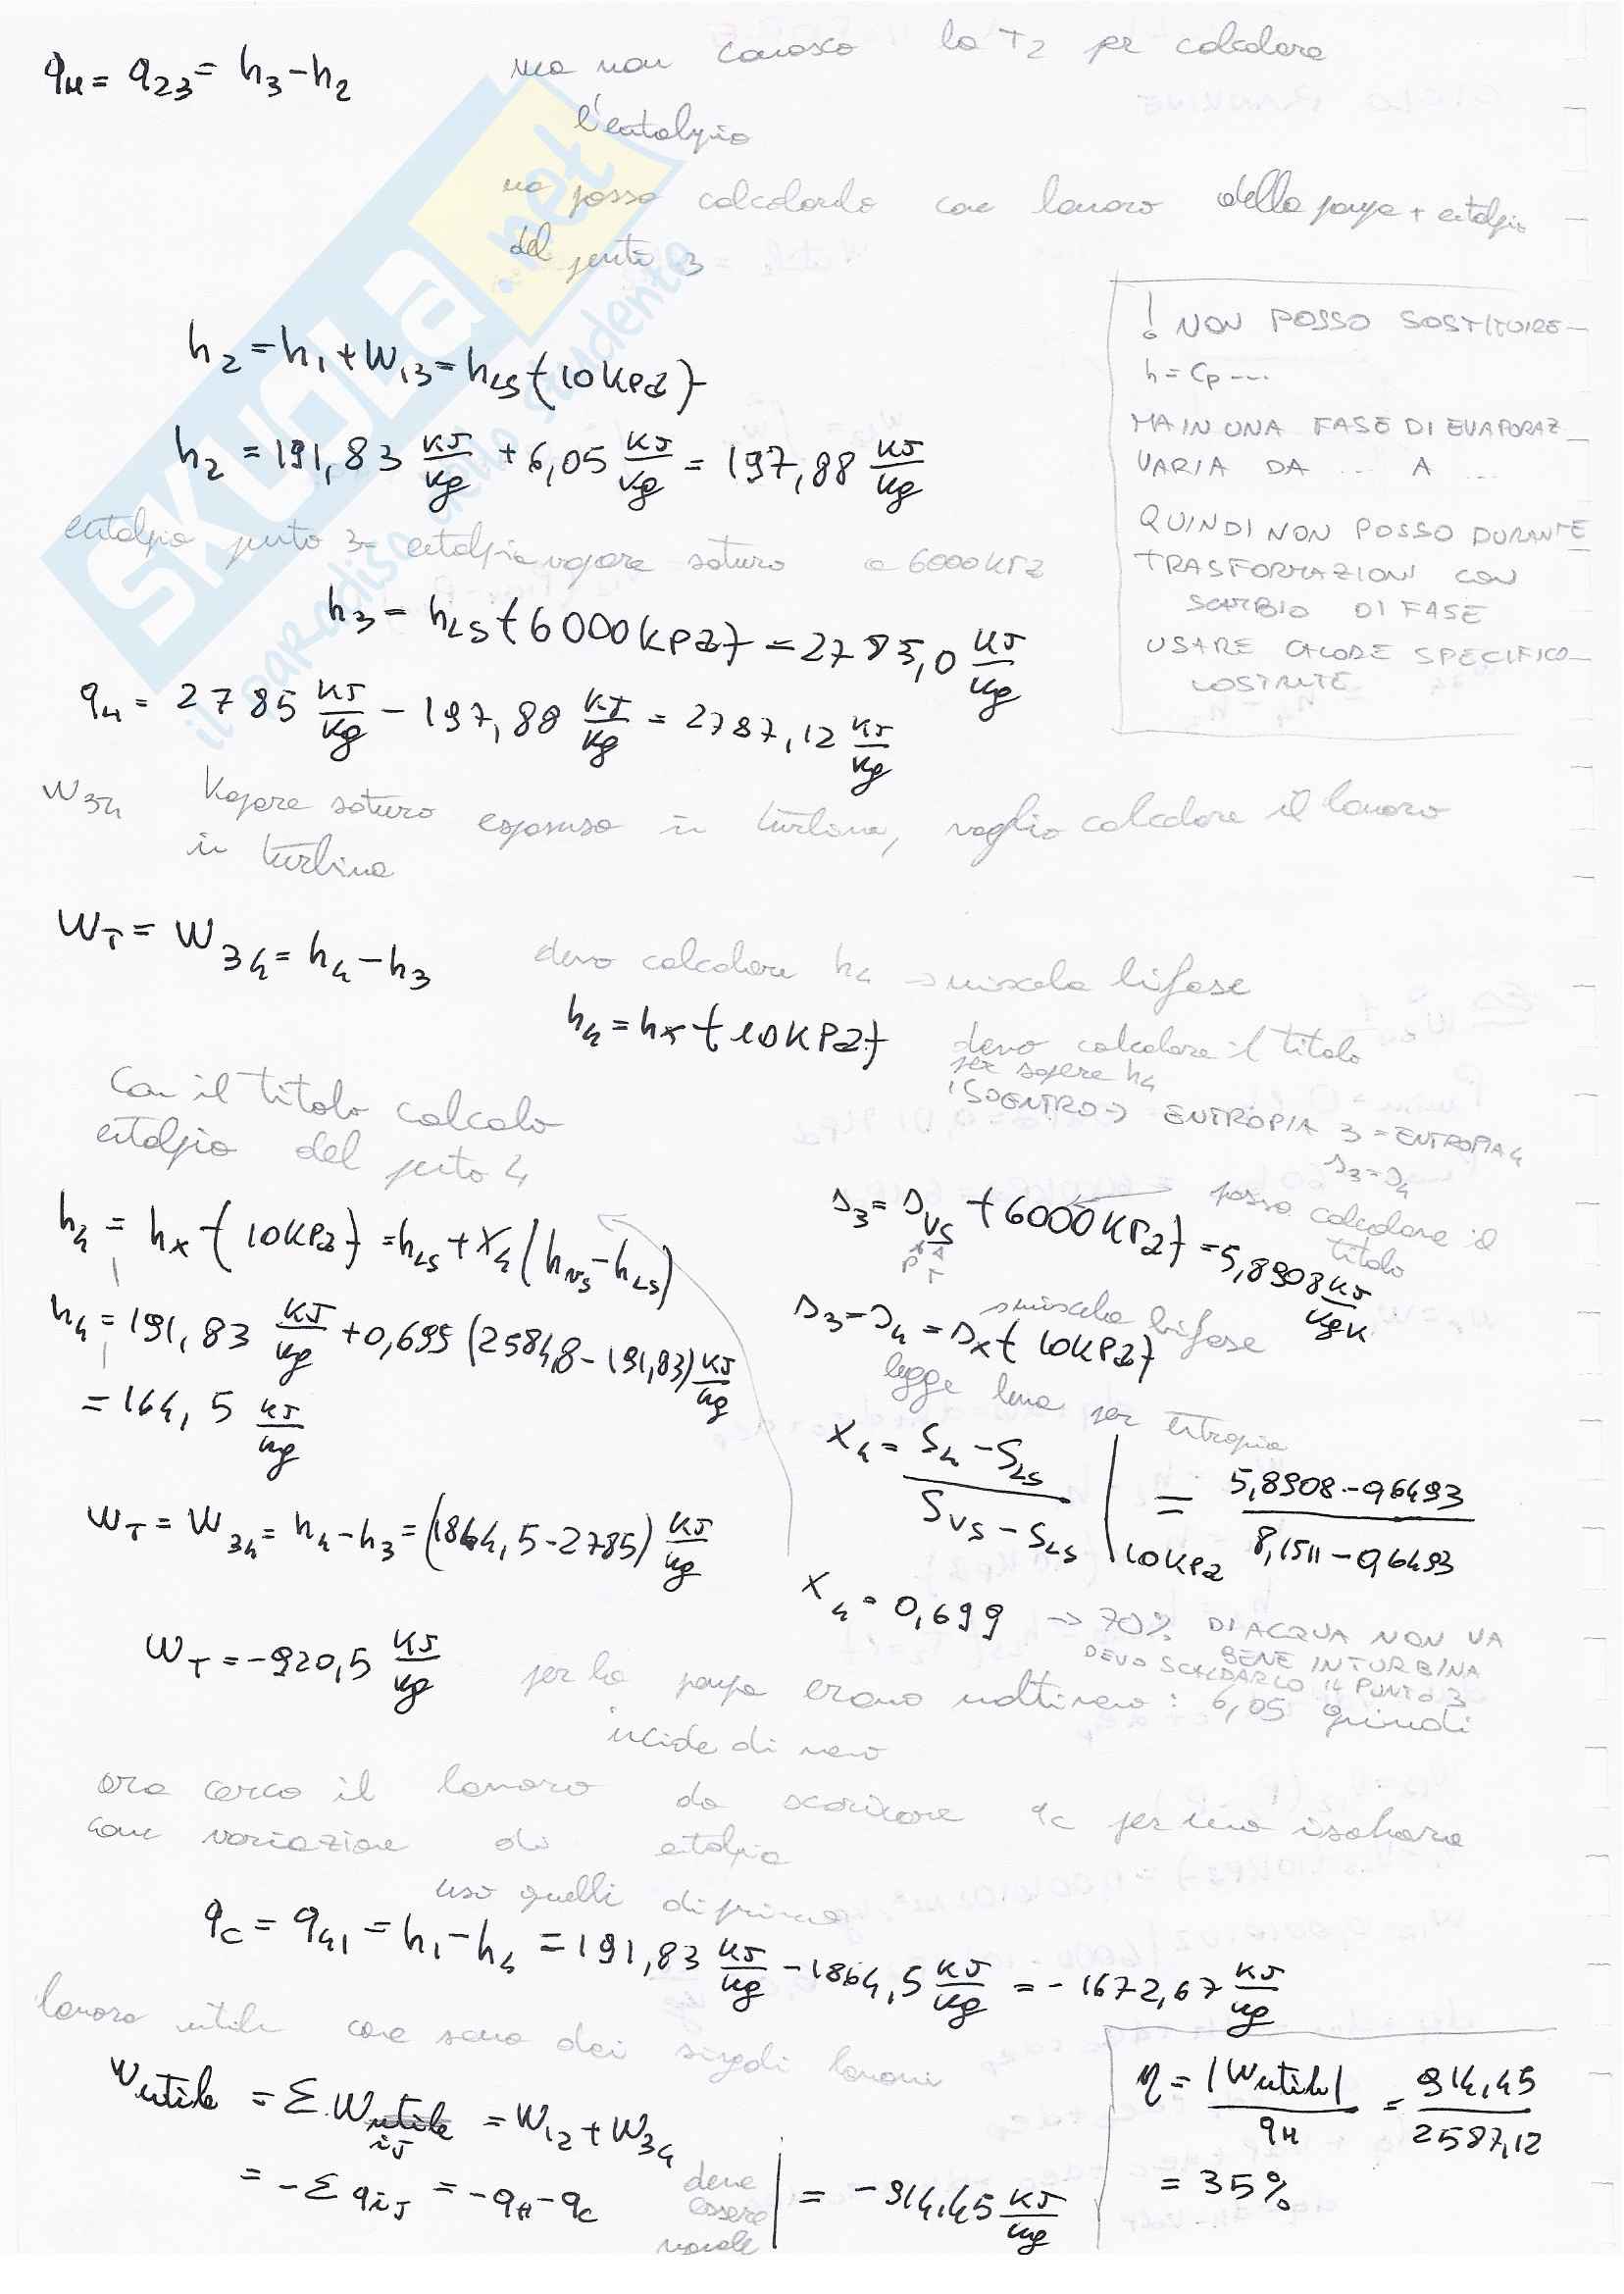 qH = q23 = h3 - h2
ma non conosco la T2 per calcolare
l'entalpia
ma posso calcolarlo con lavoro della pompa + entalpia
del punto 3
h2 = h1 + W13 = hLS f(10 KPa)
h2 = 191,83 KJ/Kg + 6,05 KJ/Kg = 197,88 KJ/Kg
! NON POSSO SOSTITUIRE
h = Cp ....
MA IN UNA FASE DI EVAPORAZ
VARIA DA ... A ...
QUINDI NON POSSO DURANTE
TRASFORMAZIONI CON
SCAMBIO DI FASE
USARE CALORE SPECIFICO
COSTANTE
entalpia punto 3 - entalpia vapore saturo a 6000 KPa
h3 = hLS f(6000 KPa) = 2785,0 KJ/Kg
qH = 2785 KJ/Kg - 197,88 KJ/Kg = 2787,12 KJ/Kg
W34 Vapore saturo espanso in turbina, voglio calcolare il lavoro
in turbina
WT = W34 = h4 - h3
devo calcolare h4 → miscela bifase
h4 = hx f(10 KPa)
devo calcolare il titolo
per sapere h4
ISOENTRO → ENTROPIA 3 = ENTROPIA 4
s3 = s4
Con il titolo calcolo
entalpia del punto 4
h4 = hx f(10 KPa) = hLS + X4 (hVS - hLS)
h4 = 191,83 KJ/Kg + 0,699 (2584,8 - 191,83) KJ/Kg
= 164,5 KJ/Kg
WT = W34 = h4 - h3 = (1864,5 - 2785) KJ/Kg
WT = -920,5 KJ/Kg
s3 = sVS f(6000 KPa) = 5,8908 KJ/KgK
P T
posso calcolare il
titolo
s3 = s4 = sx f(10 KPa)
miscela bifase
legge leva per entropia
X4 = S4 - SLS / SVS - SLS | 10 KPa = 5,8908 - 0,6493 / 8,1511 - 0,6493
X4 = 0,699 → 70% DI ACQUA NON VA
BENE IN TURBINA
DEVO SCALDARLO IL PUNTO 3
per la pompa erano molti meno : 6,05 quindi
incide di meno
ora cerco il lavoro da scaricare qC per una isobara
come variazione di entalpia
uso quelli di prima
qC = q41 = h1 - h4 = 191,83 KJ/Kg - 1864,5 KJ/Kg = -1672,67 KJ/Kg
lavoro utile come somma dei singoli lavori
Wutile = Σ Wij = W12 + W34
= -Σ qij = -qH - qC
deve essere uguale
= -914,45 KJ/Kg
η = |Wutile| / qH = 914,45 / 2587,12
= 35%
SKUOLA.net
il paradiso dello studente